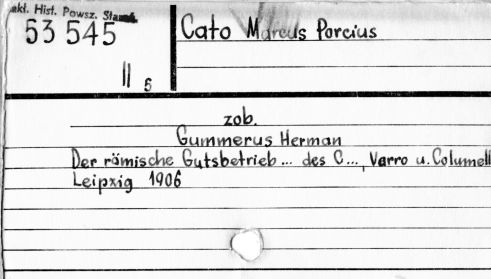 akł. Hist. Powsz. Staroż.
53 545
II 5
Cato Marcus Porcius
zob.
Gummerus Herman
Der römische Gutsbetrieb... des C..., Varro u. Columell
Leipzig 1906